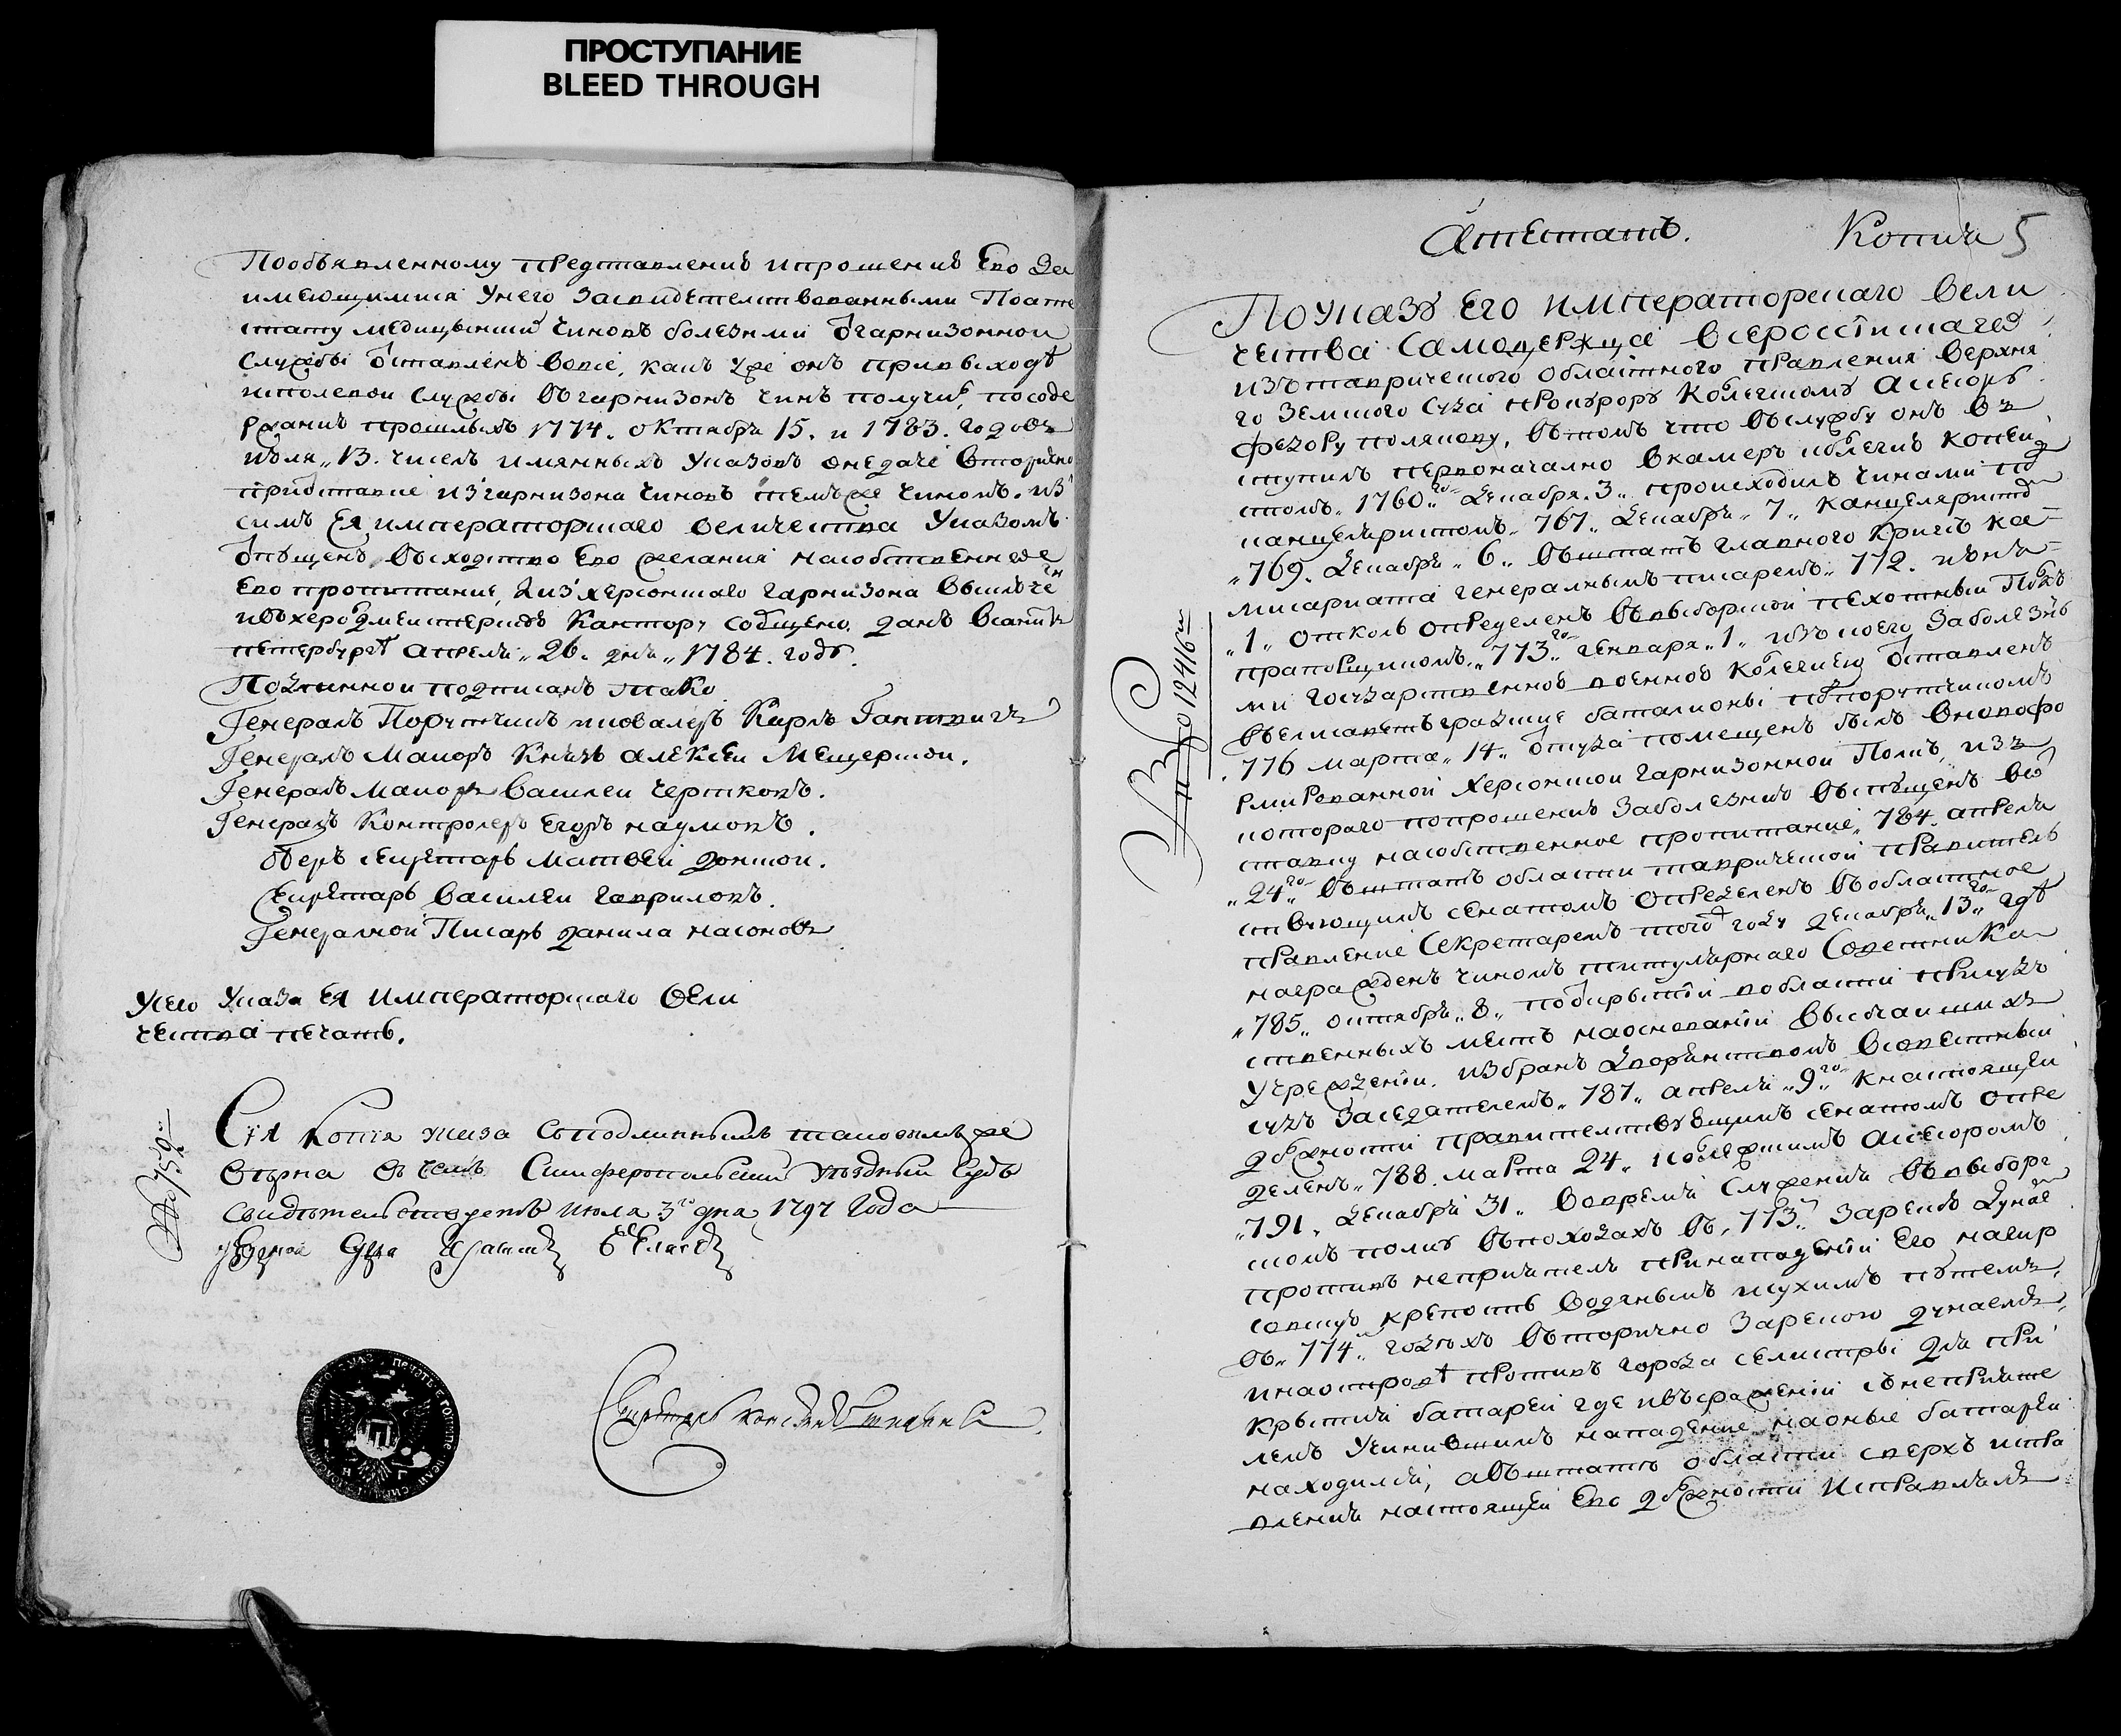 ПРОСТУПАНИЕ
BLEED THROUGH
Пообъявленному представлению ипрошению Ево За
имеющимися Унего Засвидетелствованными Поатте
стату медицынских чиновъ болезнми отгарнизонной
службы отставленъ вовсе, какъ уже онъ привыходѣ
исполевой службы въгарнизонъ чинъ получилъ, посоде
ржанию прошлыхъ 1774. октября 15. и 1783. годовъ
июля „13. числъ имянныхъ Указовъ онедаче вторично
приотставке изгарнизона чиновъ темъже чиномъ. ис
симъ Ея императорскаго величества Указомъ
отпущенъ, всходство Ево желания насобственное
Ево пропитание, и изхерсонского гарнизона выключенъ
ивъ Канторy сообщено. данъ всанктъ
петербургѣ апреля „26. дня „1784. году.
Подлинной подписанъ тако
Генералъ Порутчикъ икавалеръ Карлъ Гантвигъ
Генералъ Маиоръ Князь алексеи Мещерской.
Генералъ Маиоръ василеи чертковъ.
Генералъ Контролеръ Егоръ наумовъ.
оберъ секретарь Матвеи донской.
Секретарь василеи гавриловъ.
Генералной Писарь данила насоновъ
Усего Указа Ея Императорскаго вели
чества печать.
Сія Копія указа съподлиннымъ таковымъже
верна въ чемъ Симферопольский уѣздный Судъ
Свидѣтельствуетъ июля 3го дня 1797 года
уѣздной Судья
Секретарь
Атестатъ. Копия 5
Поуказу Его императорскаго вели
чества Самодержца всероссiискаго
изътаврическаго областного правления верхня
го Земского Суда прокурору Колежскому асесору
федору полянову, въ томъ что вслужбу онъ въ
ступилъ первоначално вкамеръ колегию копеи
стомъ „1760.го декабря. 3„ происходилъ чинами под
канцеляристомъ „767„ декабря „7„ канцеляристомъ
„769. декабря „6„ въштатъ главного кригсъ ка-
мисариата генералнымъ писаремъ „772. июня
„1„ отколь определенъ ввыборгской пехотныи Полкъ
прапорщикомъ „773„го генваря „1„ изъ коего заболезнь
ми государственною военною колегиею отставленъ
батальоны подпорутчикомъ
„776 марта „14„ оттуда помещенъ былъ вновофо
рмированной Херсонской гарнизонной Полкъ, изъ
котораго попрошению Заболезнию выпущенъ въ от
ставку насобственное пропитание, 784. апреля
„24го„ въштатъ области таврической правитель
ствующимъ сенатомъ определенъ въобластное
правление Секретаремъ того году декабря „13го„ гдѣ
награжденъ чиномъ титулярнаго Советника
„785„ октября „8„ пооткрытiи вобласти присуд
ственныхъ местъ наосновании высочаишихъ
Учрежденiи. избранъ дворянствомъ всовестный
судъ Заседателемъ „787„ апреля „9го„ кнастоящеи
должности правителствующимъ сенатомъ опре
деленъ „788. марта 24„ колежскимъ асесоромъ
„791„ декабря 31„ вовремя служения ввыборг
скомъ полку въпоходахъ въ „773„ Зарекою Дунаемъ
противъ неприятеля принападении Его нагир
совскую крепость водянымъ исухимъ путемъ,
въ „774„ годехъ вторично Зарекою дунаемъ,
инаостровѣ противъ города селистрыи для при
крытия батареи где ивъсражении снеприяте
лемъ Учинившимъ нападение наоные батареи
находился, авъштате области сверхъ испра
вления настоящеи Ево должности Исправлялъ